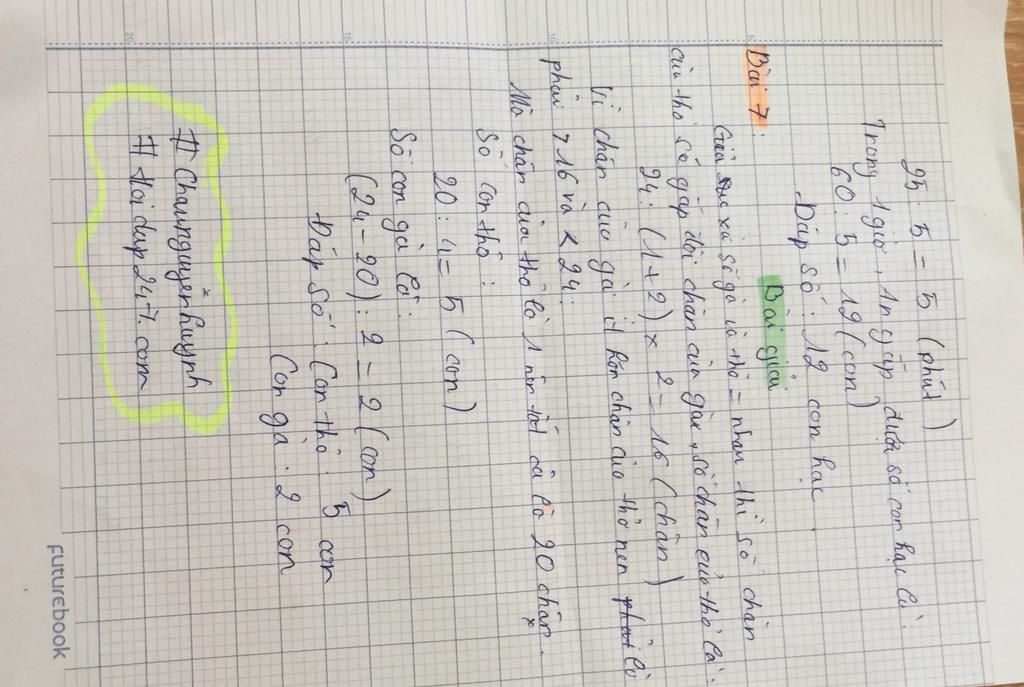 25 5 = 5 (phút)
Trong 1 giờ, An gấp được số con hạc là:
60 : 5 = 12 (con)
Đáp số : 12 con hạc
Bài giải
Bài 7:
Giả sử số gà và thỏ = nhau thì số chân
của thỏ sẽ gấp đôi chân của gà, số chân của thỏ là:
24 : (1+2) x 2 = 16 (chân)
Vì chân của gà ít hơn chân của thỏ nên phải là
phải > 16 và < 24:
Mà chân của thỏ là 1 nên tất cả là 20 chân.
Số con thỏ :
20 : 4 = 5 (con)
Số con gà là:
(24 - 20) : 2 = 2 (con)
Đáp số : Con thỏ : 5 con
Con gà : 2 con
# Chaunguyễnhuỳnh
# Hoi dap 247. com
20
15
10
5
FUTUREBOOK